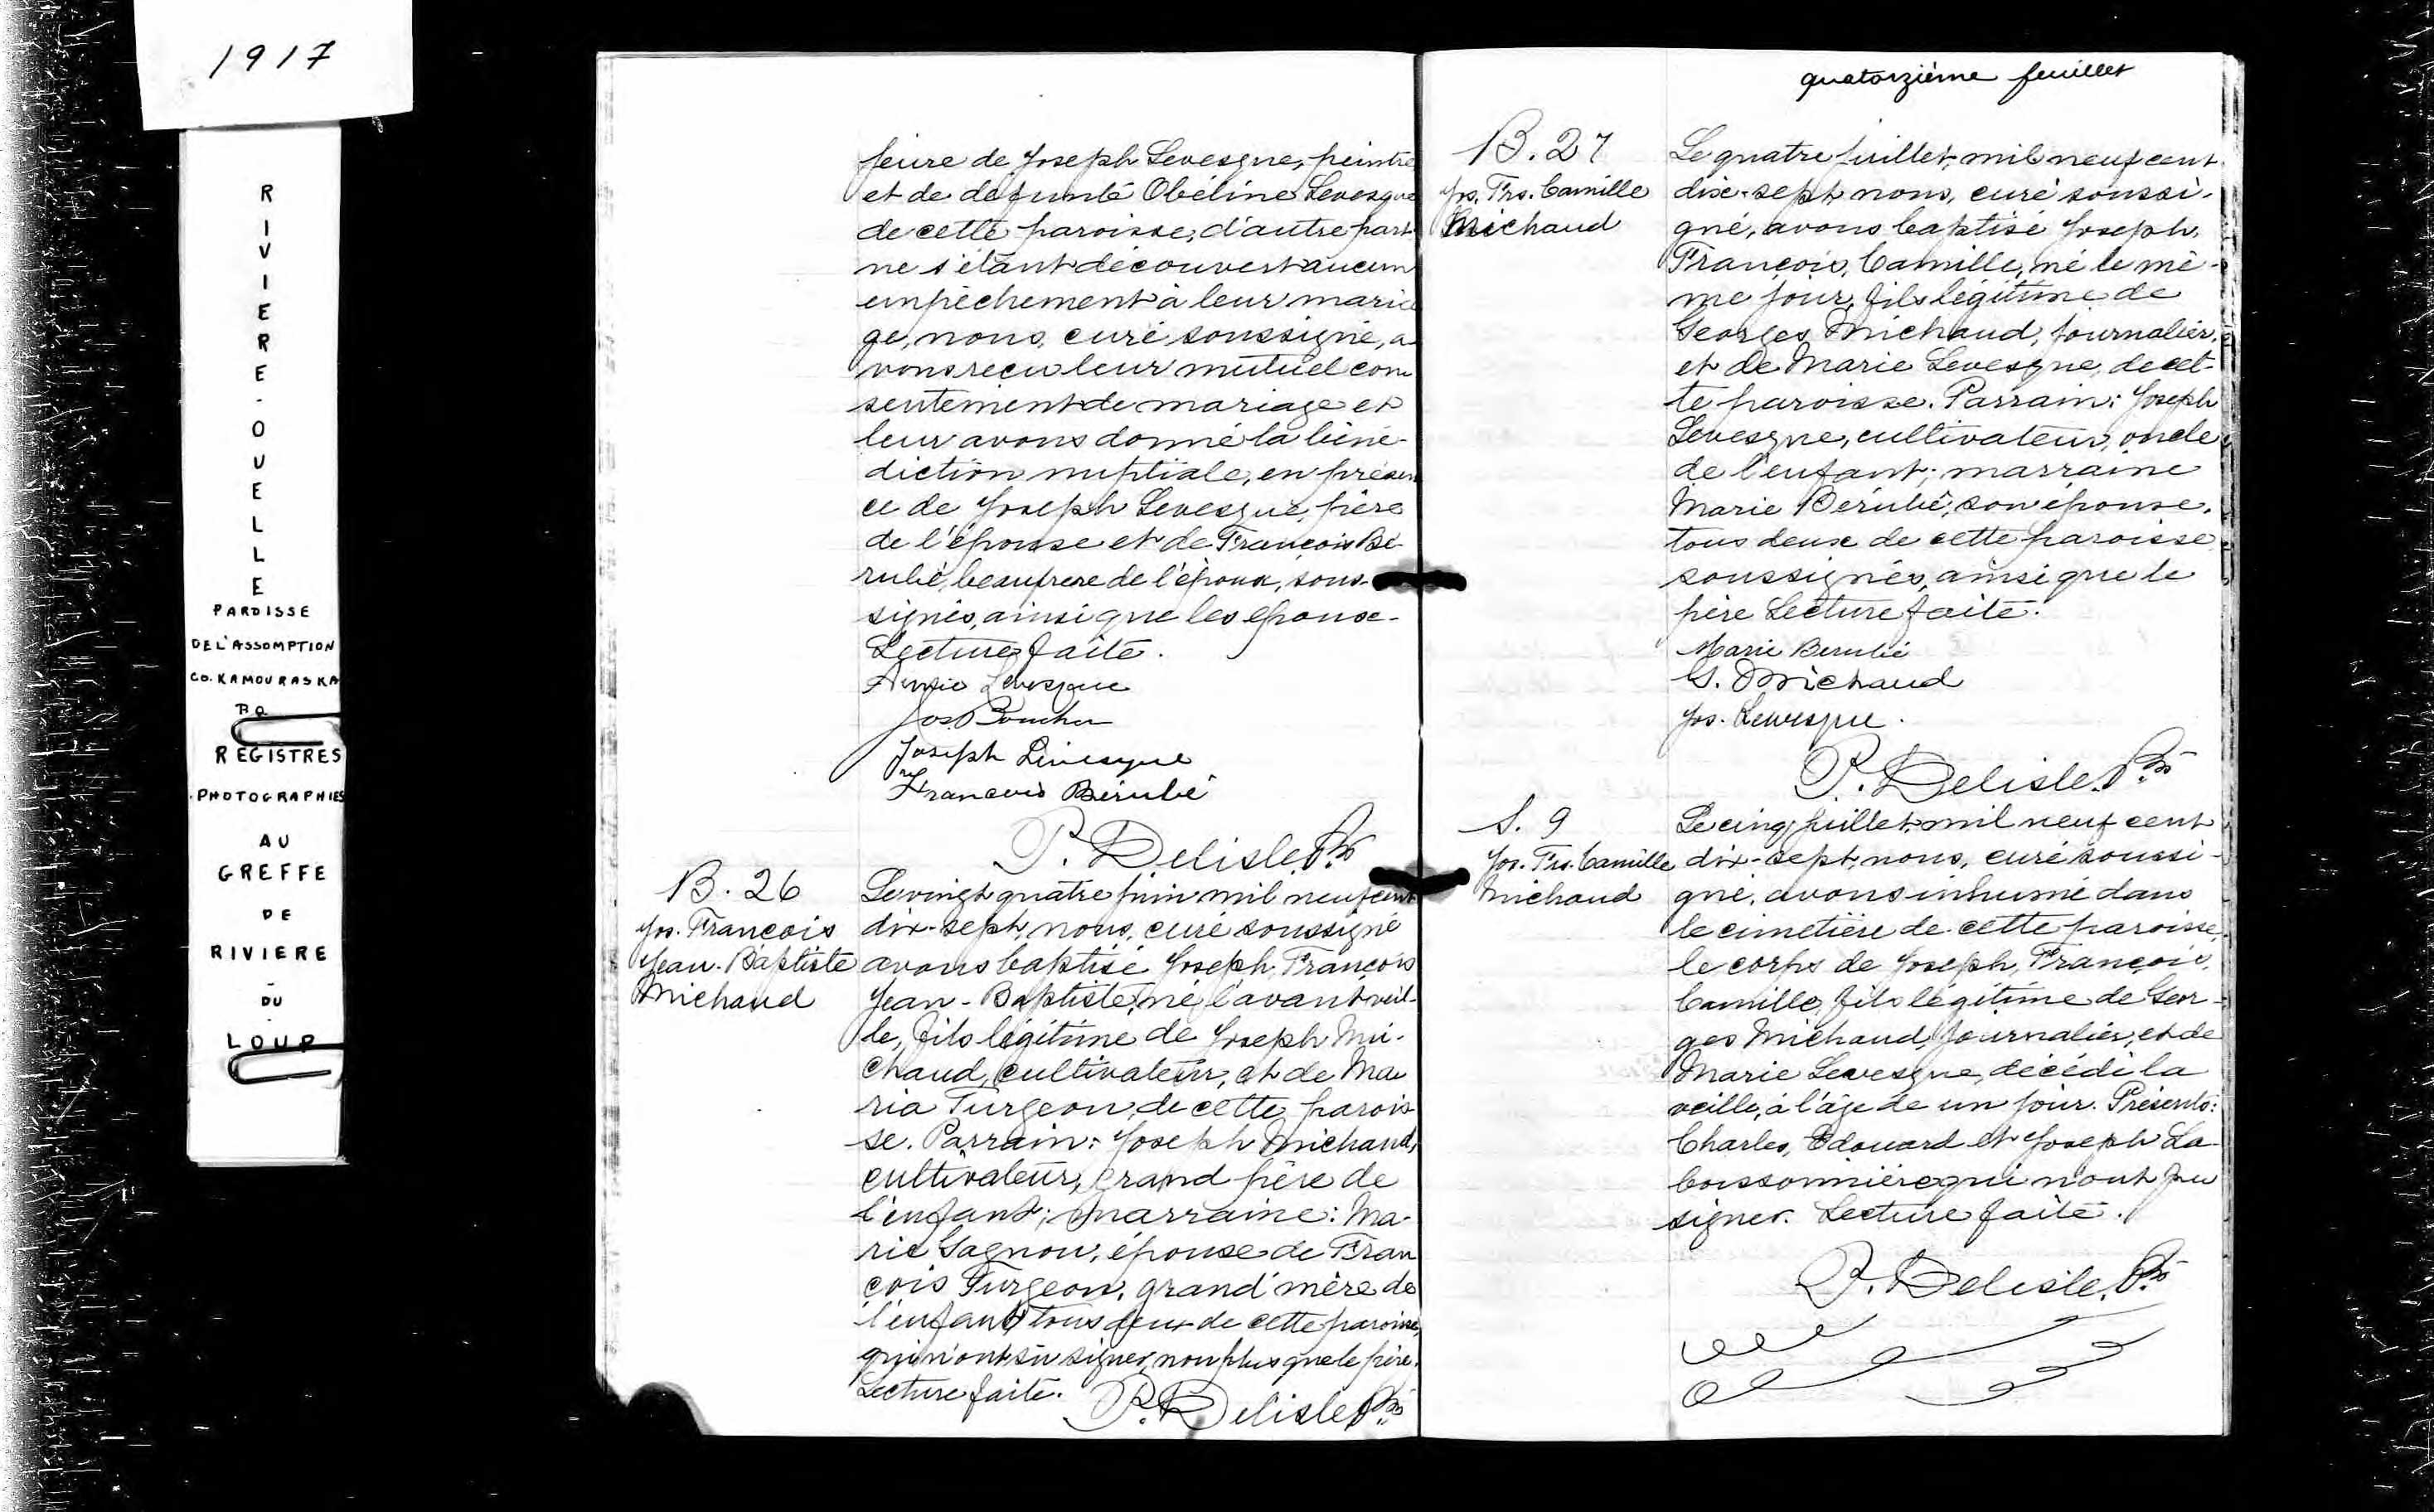 1917
RIVIERE-OUELLE
PAROISSE
DE L'ASSOMPTION
CO. KAMOURASKA
P Q
REGISTRES
PHOTOGRAPHIES
AU
GREFFE
DE
RIVIERE
-
DU
-
LOUP
jeure de Joseph Levesque, peintre
et de défunte Obéline Levesque
de cette paroisse, d'autre part
ne s'étant découvert aucun
empêchement à leur maria
ge, nous, curé soussigné, a
vons reçu leur mutuel con
sentement de mariage et
leur avons donné la béné-
diction nuptiale, en présen
ce de Joseph Levesque, père
de l'épouse et de François Bé-
rubé, beaufrère de l'époux, sous-
signés, ainsi que les époux.
Lecture faite.
Levesque
Jos Boucher
Joseph Lévesque
François Bérubé
P. Delisle, Ptre
B. 26
Jos. François
Jean-Baptiste
Michaud
Le vingt quatre juin mil neuf cent
dix-sept, nous, curé soussigné
avons baptisé Joseph, François
Jean-Baptiste, né l'avant veil-
le, fils légitime de Joseph Mi-
chaud, cultivateur, et de Ma
ria Turgeon, de cette parois
se. Parrain: Joseph Michaud,
cultivateur, grand père de
l'enfant; marraine: Ma-
rie Gagnon, épouse de Fran
çois Turgeon, grand'mère de
l'enfant tous deux de cette paroisse,
qui n'ont su signer, non plus que le père.
Lecture faite. P. Delisle Ptre
quatorzième feuillet
B. 27
Jos. Frs. Camille
Michaud
Le quatre juillet, mil neuf cent
dix-sept nous, curé soussi-
gné, avons baptisé Joseph,
François, Camille, né le mê-
me jour, fils légitime de
Georges Michaud, journalier,
et de Marie Levesque, de cet-
te paroisse. Parrain: Joseph
Levesque, cultivateur, oncle
de l'enfant; marraine
Marie Bérubé, son épouse,
tous deux de cette paroisse
soussignés, ainsi que le
père Lecture faite.
Marie Berubé
G. Michaud
Jos. Levesque.
P. Delisle, Ptre
S. 9
Jos. Frs. Camille
Michaud
Le cinq juillet, mil neuf cent
dix-sept, nous, curé soussi-
gné, avons inhumé dans
le cimetière de cette paroisse,
le corps de Joseph, François,
Camille, fils légitime de Geor-
ges Michaud, journalier, et de
Marie Levesque, décédé la
veille, à l'âge de un jour. Présents:
Charles, Edouard et Joseph La-
boissonnière qui n'ont pu
signer. Lecture faite.
P. Delisle, Ptre